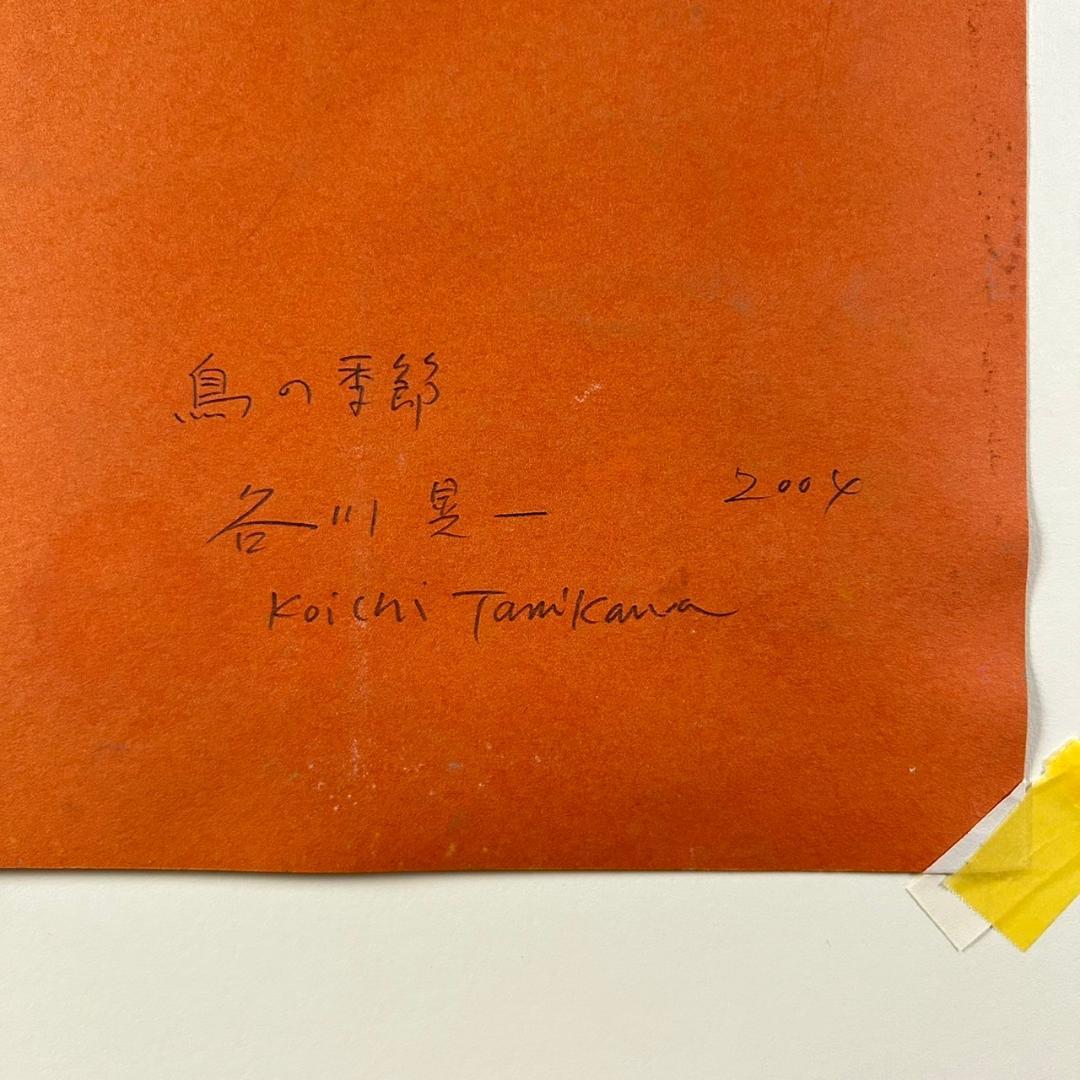 鳥の季節
谷川晃一 2004
Koichi Tanikawa